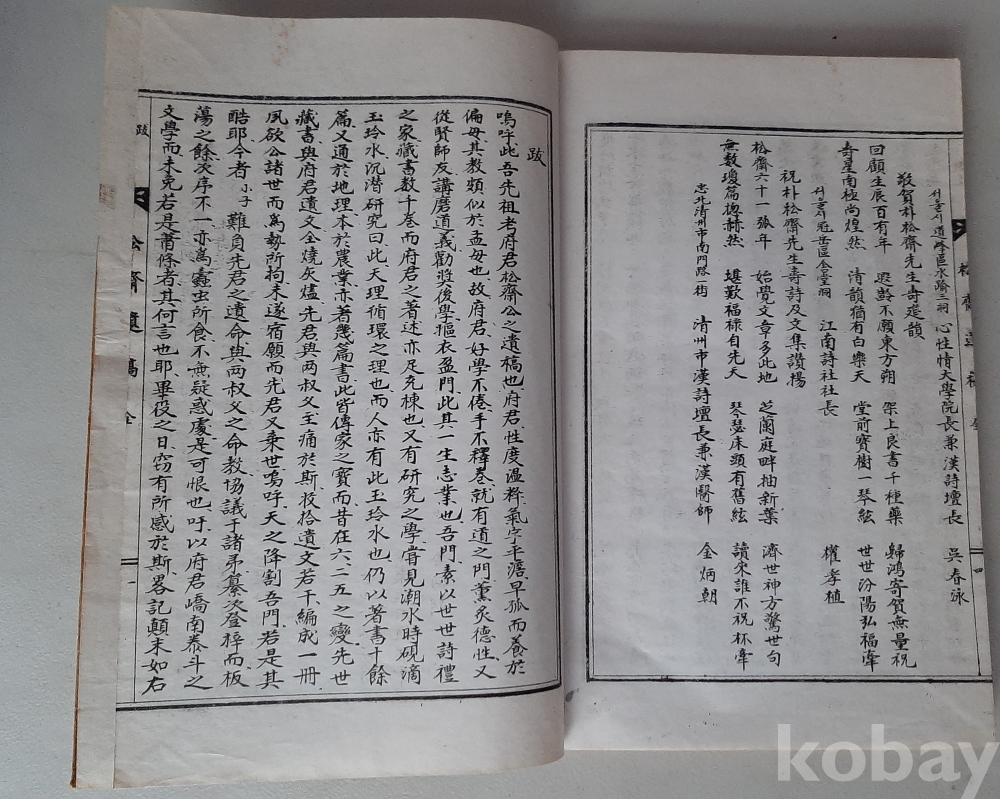 서울시道峰區水踰三洞 心性情大學院長兼漢詩壇長 吳春泳
敬賀朴松齋先生壽筵韻
回顧生辰百有年 遐齡不願東方朔 架上良書千種藥 歸鴻寄賀無量祝
壽星南極尚煌然 清韻猶有白樂天 堂前寶樹一琴絃 世世汾陽弘福牽
서울시冠岳區奉堂洞 江南詩社社長 權孝植
祝朴松齋先生壽詩及文集讚揚
松齋六十一弧年 始覺文章多此地 芝蘭庭畔抽新葉 濟世神方驚世句
無數瓊篇摠赫然 堪歎福祿自先天 琴瑟床頭有舊絃 讀宋誰不祝杯牽
忠北清州市南門路一街 清州市漢詩壇長兼漢醫師 金炳朝
松齋遺稿 全 四
跋
嗚呼此吾先祖考府君松齋公之遺稿也府君性度溫粹氣宇平澹早孤而養於
偏母其教類似於孟母也故府君好學不倦手不釋卷就有道之門薰炙德性又
從賢師友講磨道義勸獎後學摳衣盈門此其一生志業也吾門素以世世詩禮
之家藏書數千卷而府君之著述亦足充棟也又有研究之學嘗見潮水時硯滴
玉玲水沉潛研究曰此天理循環之理也而人亦有此玉玲水也仍以著書十餘
篇又通於地理本於農業亦著幾篇書此皆傳家之寶而昔在六二五之變先世
藏書與府君遺文全燒灰燼先君與兩叔父主痛於斯收拾遺文若干編成一冊
夙欲公諸世而爲勢所拘未遂宿願而先君又棄世嗚呼天之降割吾門若是其
酷耶今者小子難負先君之遺命與兩叔父之命教協議于諸弟纂次登梓而板
蕩之餘次序不一亦爲蠹虫所食不無疑惑處是可恨也吁以府君嶠南泰斗之
文學而未免若是蕭條者其何言也耶畢役之日窃有所感於斯畧記顛末如右
跋 松齋遺稿 全 一
kobay